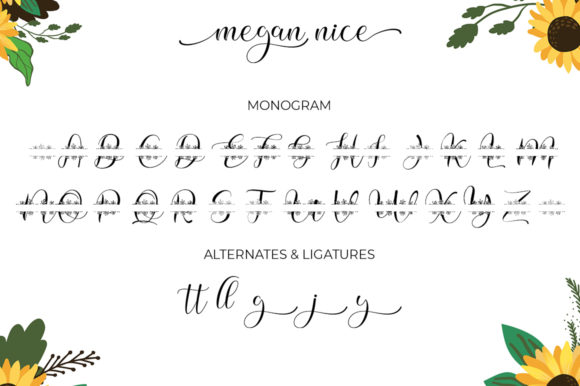 megan nice
MONOGRAM
A B C D E F G H I J K L M
N O P Q R S T U V W X Y Z
ALTERNATES & LIGATURES
tt ll g j y